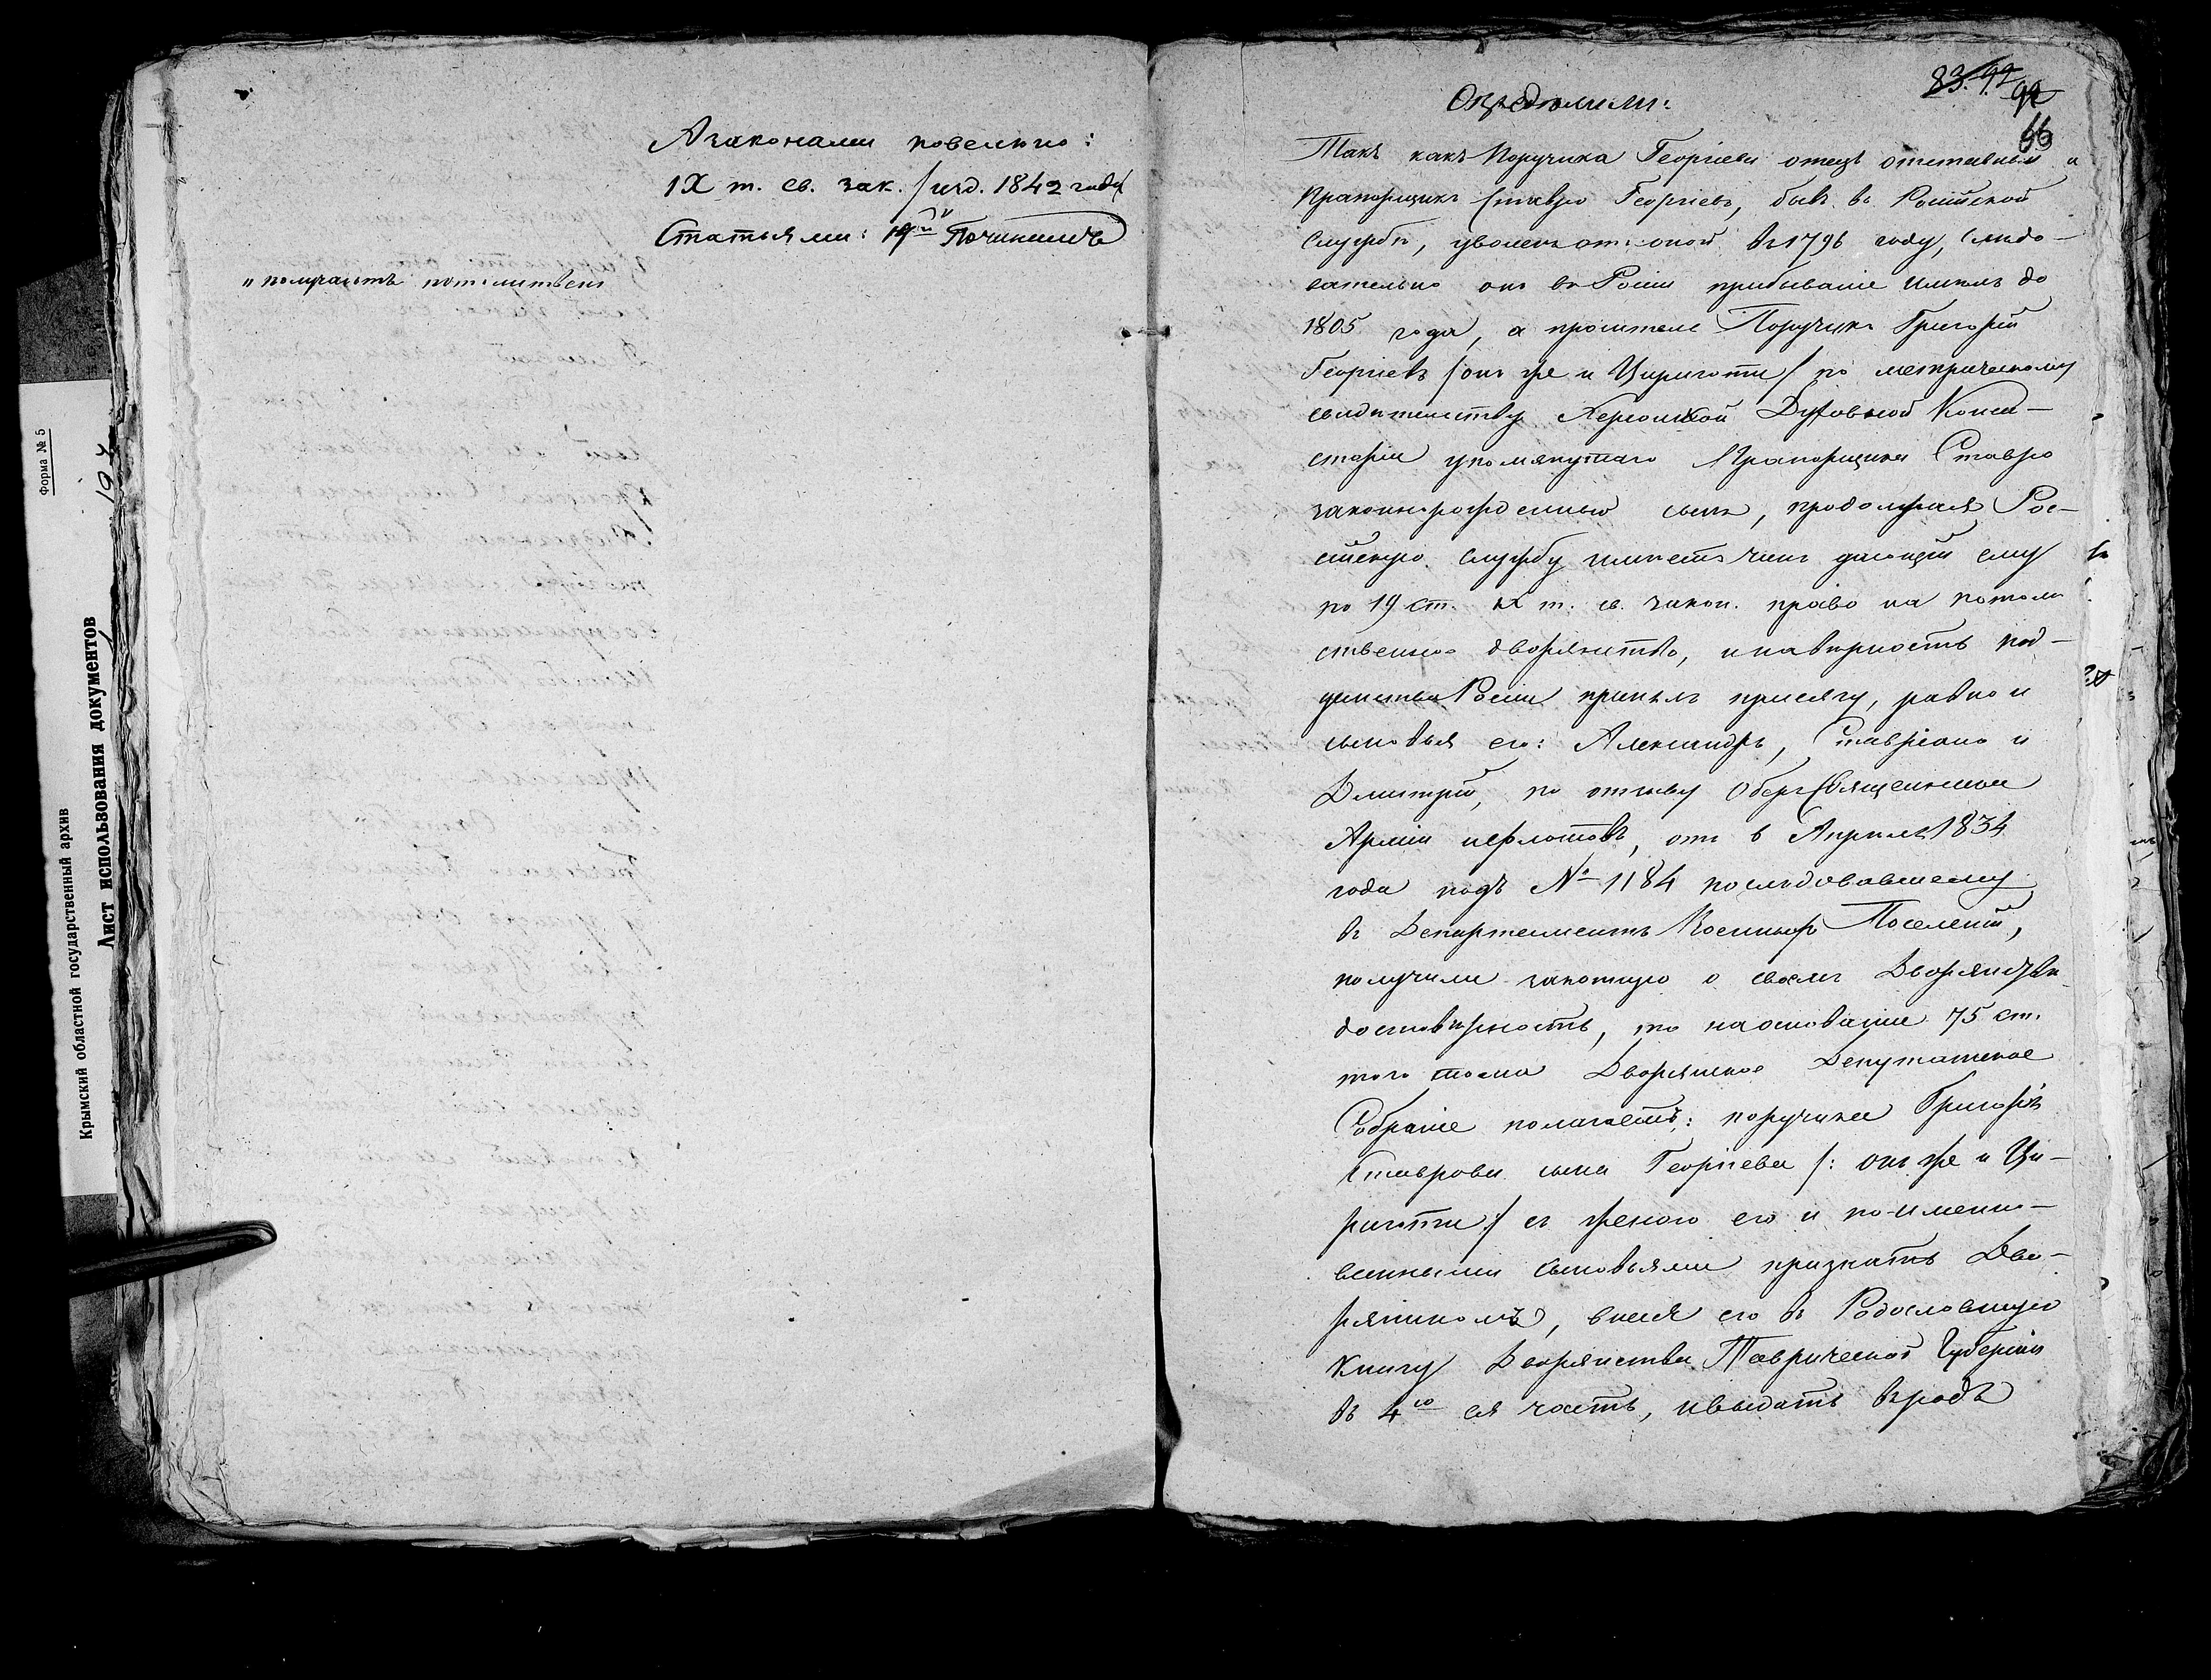 Форма № 5
197
Крымский областной государственный архив
Лист использования документов
А законами повелено:
IX т. св. зак. /изд. 1842 года/
Статьями: 19й По чинамъ
"получаютъ потомствен
83. 92
92
66
Опредѣлили:
Такъ какъ Поручика Георгіева отецъ отставный
Прапорщикъ Ставро Георгіевъ, бывъ въ Россійской
службѣ, уволенъ отъ оной въ 1796 году, слѣдо-
вательно онъ въ Россіи пребываніе имѣлъ до
1805 года, а проситель Поручикъ Григорій
Георгіевъ /онъ же и Цириготи/ по метрическому
свидѣтельству Херсонской Духовной Конси-
сторіи упомянутаго Прапорщика Ставро
законнорожденный сынъ, продолжая Рос-
сійскую службу имѣетъ чинъ дающій ему
по 19 ст. IX т. св. закон. право на потом
ственное дворянство, и на вѣрность под-
данства Россіи принялъ присягу, равно и
сыновья его: Александръ, Ставріанъ и
Дмитрій, по отзыву Оберъ Священника
Арміи и флотовъ, отъ 6 Апрѣля 1834
года подъ № 1184 послѣдовавшему
въ Департаментъ Военныхъ Поселеній,
получили законную о своемъ Дворянствѣ
достовѣрность, то на основаніи 75 ст.
того тома Дворянское Депутатское
Собраніе полагаетъ: поручика Григорія
Ставрова сына Георгіева /: онъ же и Ци-
риготи :/ съ женою его и по-имено-
ванными сыновьями признать Дво-
ряниномъ, внеся его въ Родословную
книгу Дворянства Таврической Губерніи
въ 4ю ея часть, и выдать въ родъ